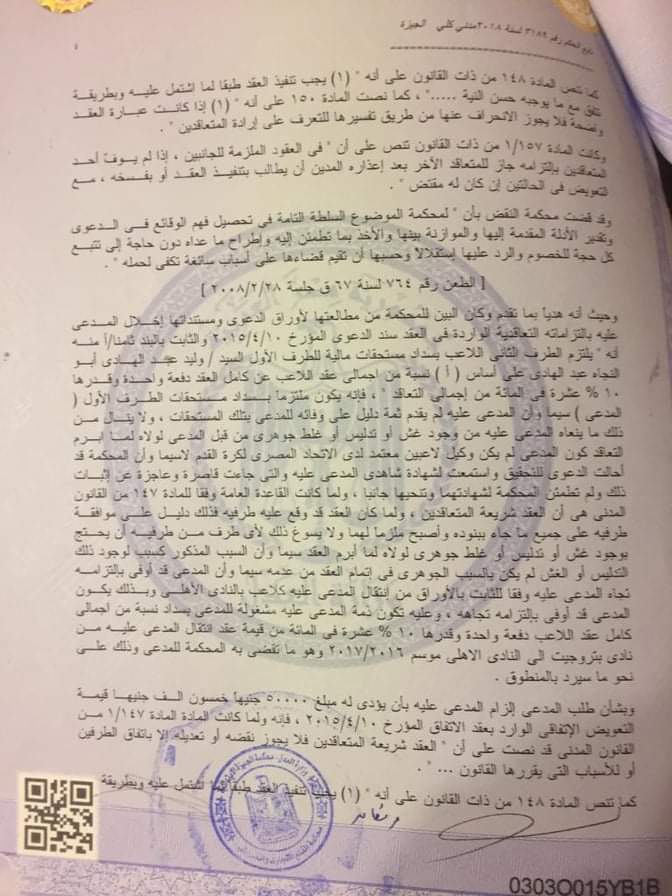 تابع الحكم رقم ٣١٨٩ لسنة ٢٠١٨ مدني كلي الجيزة
٤
كما تنص المادة ١٤٨ من ذات القانون على أنه " (١) يجب تنفيذ العقد طبقا لما اشتمل عليه وبطريقة
تتفق مع ما يوجبه حسن النية ..... " ، كما نصت المادة ١٥٠ على أنه " (١) إذا كانت عبارة العقد
واضحة فلا يجوز الانحراف عنها من طريق تفسيرها للتعرف على إرادة المتعاقدين " .
وكانت المادة ١/١٥٧ من ذات القانون تنص على أن " في العقود الملزمة للجانبين ، إذا لم يوف أحد
المتعاقدين بإلتزامه جاز للمتعاقد الآخر بعد إعذاره المدين أن يطالب بتنفيذ العقد أو بفسخه ، مع
التعويض في الحالتين إن كان له مقتض " .
وقد قضت محكمة النقض بأن " لمحكمة الموضوع السلطة التامة في تحصيل فهم الوقائع في الدعوى
وتقدير الأدلة المقدمة إليها والموازنة بينها والأخذ بما تطمئن إليه وإطراح ما عداه دون حاجة إلى تتبع
كل حجة للخصوم والرد عليها إستقلالاً وحسبها أن تقيم قضاءها على أسباب سائغة تكفى لحمله " .
[ الطعن رقم ٧٦٤ لسنة ٦٧ ق جلسة ٢٠٠٨/٢/٢٨ ]
وحيث أنه هدياً بما تقدم وكان البين للمحكمة من مطالعتها لأوراق الدعوى ومستنداتها إخلال المدعى
عليه بالتزاماته التعاقدية الواردة في العقد سند الدعوى المؤرخ ٢٠١٥/٤/١٠ والثابت بالبند ثامنا/أ منه
أنه " يلتزم الطرف الثاني اللاعب بسداد مستحقات مالية للطرف الأول السيد / وليد عبد الهادى أبو
النجاه عبد الهادى على أساس ( أ ) نسبة من اجمالى عقد اللاعب عن كامل العقد دفعة واحدة وقدرها
١٠ % عشرة في المائة من إجمالى التعاقد " ، فإنه يكون ملتزما بسداد مستحقات الطرف الأول (
المدعى ) سيما وأن المدعى عليه لم يقدم ثمة دليل على وفائه للمدعى بتلك المستحقات ، ولا ينال من
ذلك ما ينعاه المدعى عليه من وجود غش أو تدليس أو غلط جوهرى من قبل المدعى لولاه لما ابرم
التعاقد كون المدعى لم يكن وكيل لاعبين معتمد لدى الاتحاد المصرى لكرة القدم لاسيما وأن المحكمة قد
أحالت الدعوى للتحقيق واستمعت لشهادة شاهدى المدعى عليه والتى جاءت قاصرة وعاجزة عن إثبات
ذلك ولم تطمئن المحكمة لشهادتهما وتنحيها جانبا ، ولما كانت القاعدة العامة وفقا للمادة ١٤٧ من القانون
المدنى هى أن العقد شريعة المتعاقدين ، ولما كان العقد قد وقع عليه طرفيه فذلك دليل على موافقة
طرفيه على جميع ما جاء ببنوده وأصبح ملزما لهما ولا يسوغ ذلك لأى طرف من طرفيه أن يحتج
بوجود غش أو تدليس أو غلط جوهرى لولاه لما أبرم العقد سيما وأن السبب المذكور كسبب لوجود ذلك
التدليس أو الغش لم يكن بالسبب الجوهرى فى إتمام العقد من عدمه سيما وأن المدعى قد أوفى بإلتزامه
تجاه المدعى عليه وفقا للثابت بالأوراق من إنتقال المدعى عليه كلاعب بالنادى الأهلى وبذلك يكون
المدعى قد أوفى بإلتزامه تجاهه ، وعليه تكون ذمة المدعى عليه مشغولة للمدعى بسداد نسبة من اجمالى
كامل عقد اللاعب دفعة واحدة وقدرها ١٠ % عشرة في المائة من قيمة عقد انتقال المدعى عليه من
نادى بتروجيت الى النادى الاهلى موسم ٢٠١٧/٢٠١٦ وهو ما تقضى به المحكمة للمدعى وذلك على
نحو ما سيرد بالمنطوق .
وبشأن طلب المدعى إلزام المدعى عليه بأن يؤدى له مبلغ ٥٠٠٠٠ جنيهاً خمسون الف جنيها قيمة
التعويض الإتفاقى الوارد بعقد الاتفاق المؤرخ ٢٠١٥/٤/١٠ ، فإنه ولما كانت المادة المادة ١/١٤٧ من
القانون المدنى قد نصت على أن " العقد شريعة المتعاقدين فلا يجوز نقضه أو تعديله إلا باتفاق الطرفين
أو للأسباب التى يقررها القانون ... " .
كما تنص المادة ١٤٨ من ذات القانون على أنه " (١) يجب تنفيذ العقد طبقا لما اشتمل عليه وبطريقة
0303O015YB1B